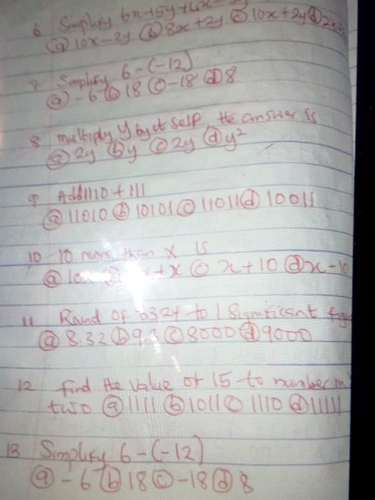 6 Simplify 6x+5y+4x-
(a) 10x-2y (b) 8x+2y (c) 10x+2y (d)
7 Simplify 6-(-12)
(a) -6 (b) 18 (c) -18 (d) 8
8 multiply y by it self, the answer is
(a) 2y (b) y (c) 2y (d) y²
9 Add 1110 + 111
(a) 11010 (b) 10101 (c) 11011 (d) 10011
10 10 more than x is
(a) 10 x (c) x+10 (d) x-10
11 Round of 8324 to 1 Significant figu
(a) 8.32 (b) 9.3 (c) 8000 (d) 9000
12 find the value of 15 to number in
two (a) 1111 (b) 1011 (c) 1110 (d) 11111
13 Simplify 6-(-12)
(a) -6 (b) 18 (c) -18 (d) 8